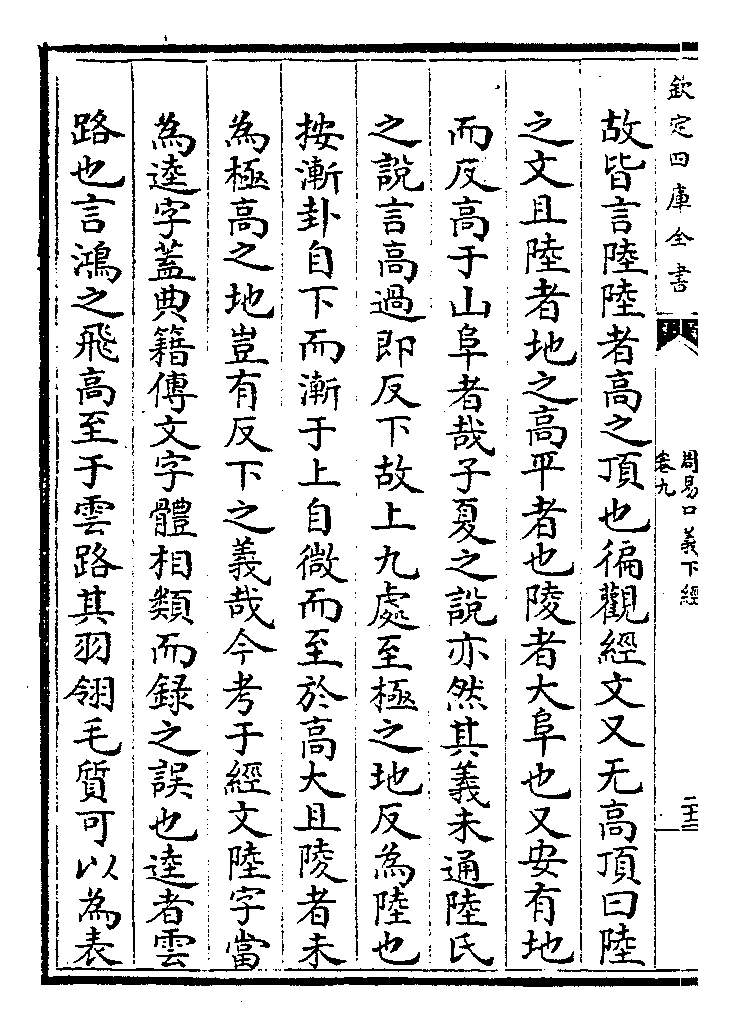 欽定四庫全書
周易口義下經
卷九
二十二
故皆言陸陸者高之頂也徧觀經文又无高頂曰陸
之文且陸者地之高平者也陵者大阜也又安有地
而反高于山阜者哉子夏之說亦然其義未通陸氏
之說言高過即反下故上九處至極之地反為陸也
按漸卦自下而漸于上自微而至於高大且陵者未
為極高之地豈有反下之義哉今考于經文陸字當
為逵字蓋典籍傳文字體相類而録之誤也逵者雲
路也言鴻之飛高至于雲路其羽翎毛質可以為表